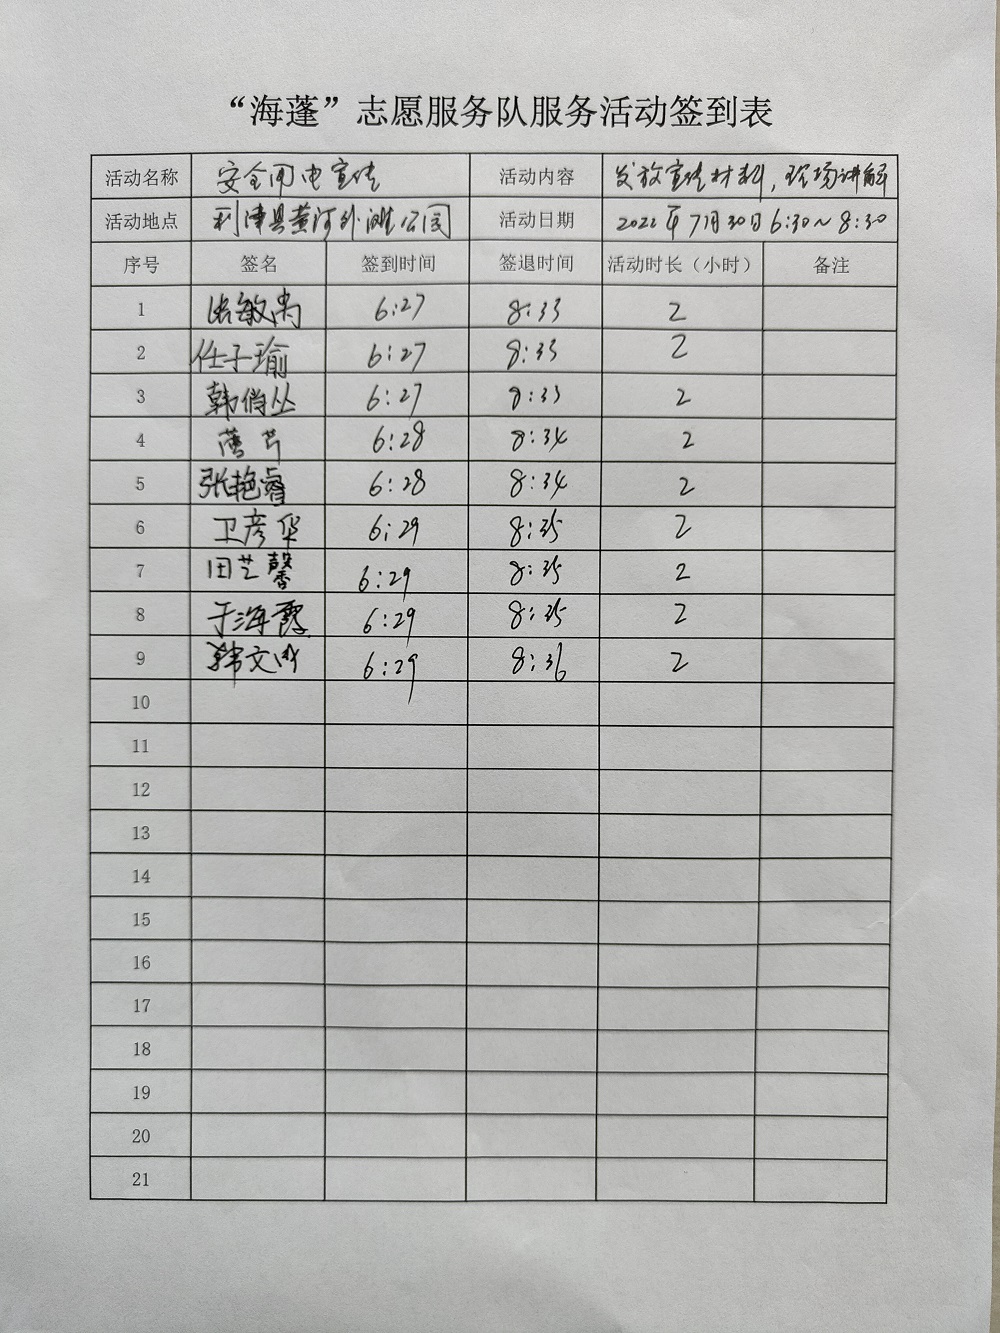 “海蓬”志愿服务队服务活动签到表
活动名称 安全用电宣传 活动内容 发放宣传材料，现场讲解
活动地点 利津县黄河外滩公园 活动日期 2022年7月30日 6:30~8:30
序号 签名 签到时间 签退时间 活动时长（小时） 备注
1 敏 6:27 8:33 2
2 任子瑜 6:27 8:33 2
3 韩俏丛 6:27 8:33 2
4 6:28 8:34 2
5 张艳睿 6:28 8:34 2
6 卫彦华 6:29 8:35 2
7 田芝馨 6:29 8:35 2
8 于海霞 6:29 8:35 2
9 韩文 6:29 8:36 2
10
11
12
13
14
15
16
17
18
19
20
21